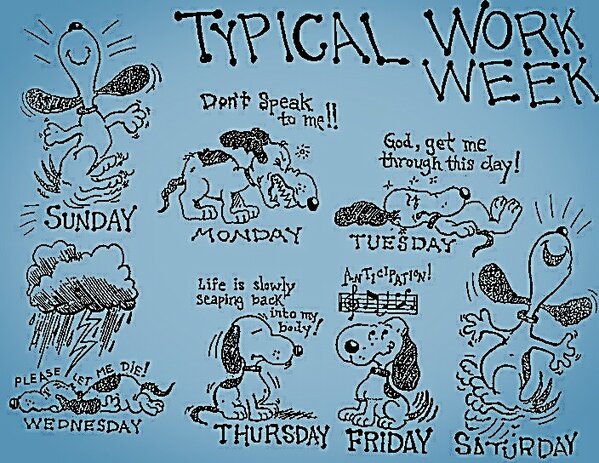 TYPICAL WORK
WEEK
SUNDAY
Don't speak
to me!!
MONDAY
God, get me
through this day!
TUESDAY
PLEASE LET ME DIE!
WEDNESDAY
Life is slowly
seaping back
into my
body!
THURSDAY
ANTICIPATION!
FRIDAY
SATURDAY